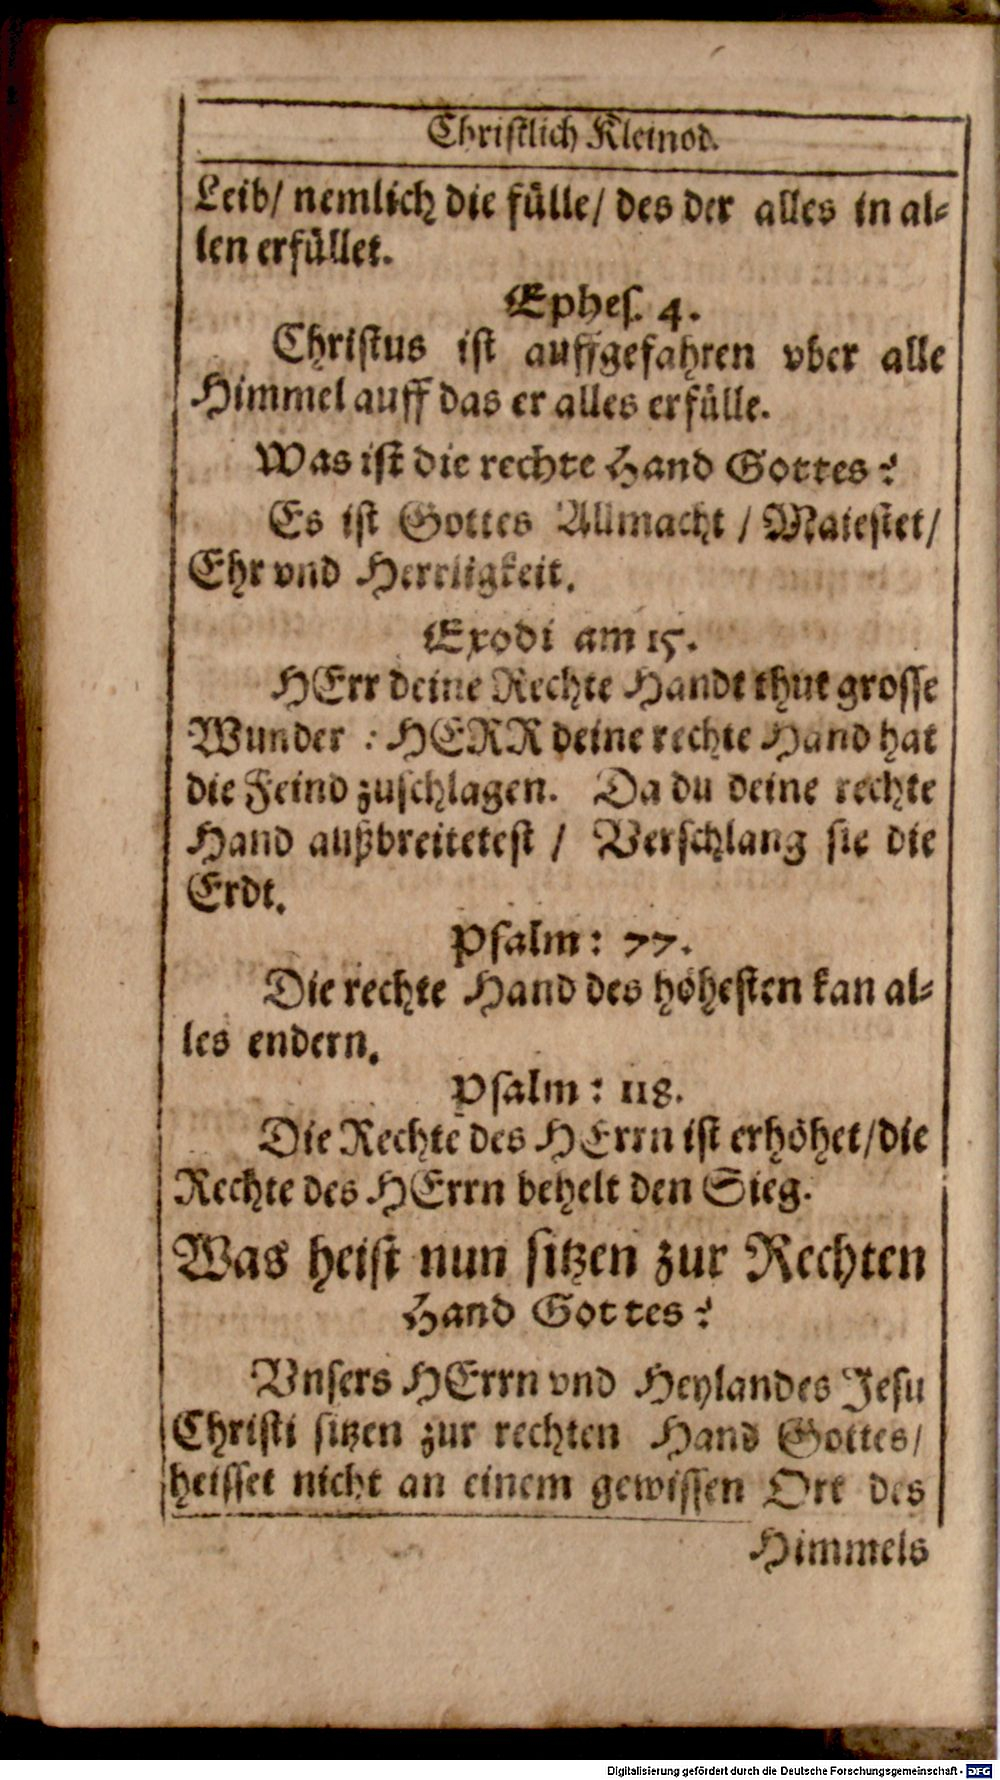 Christlich Kleinod.
Leib/ nemlich die fülle/ des der alles in al⸗
len erfüllet.
Ephes. 4.
Christus ist auffgefahren vber alle
Himmel auff das er alles erfülle.
Was ist die rechte Hand Gottes?
Es ist Gottes Allmacht / Maiestet/
Ehr vnd Herrligkeit.
Exodi am 15.
HErr deine Rechte Handt thut grosse
Wunder : HERR deine rechte Hand hat
die Feind zuschlagen. Da du deine rechte
Hand außbreitetest / Verschlang sie die
Erdt.
Psalm: 77.
Die rechte Hand des höhesten kan al⸗
les endern.
Psalm: 118.
Die Rechte des HErrn ist erhöhet/die
Rechte des HErrn behelt den Sieg.
Was heist nun sitzen zur Rechten
Hand Gottes?
Vnsers HErrn vnd Heylandes Jesu
Christi sitzen zur rechten Hand Gottes/
heisset nicht an einem gewissen Ort des
Himmels
Digitalisierung gefördert durch die Deutsche Forschungsgemeinschaft - DFG